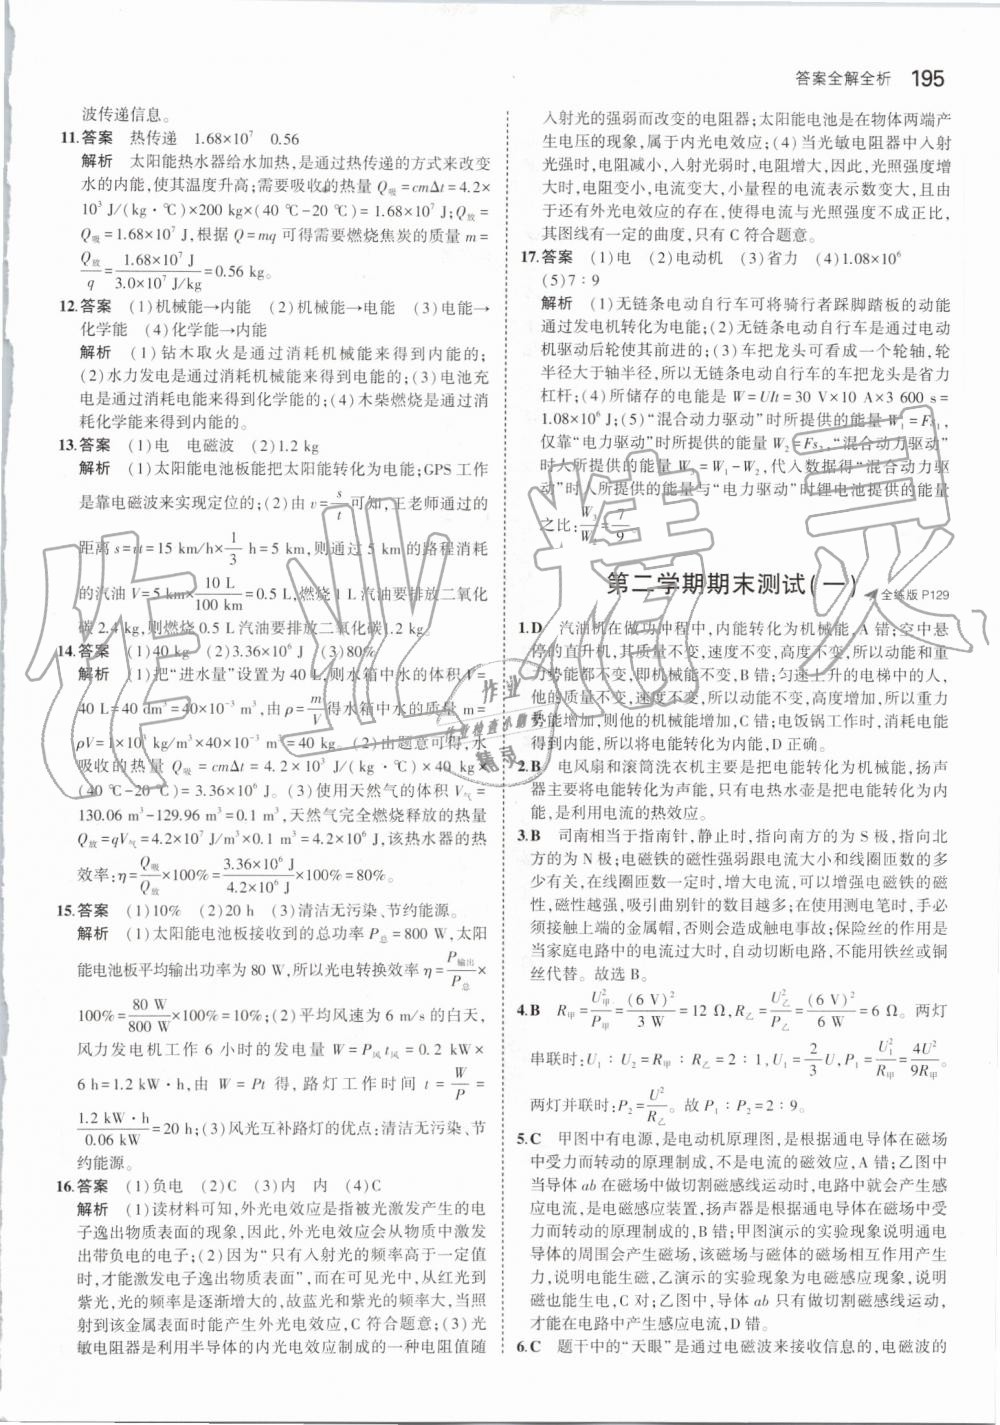 答案全解全析 195
波传递信息。
11.答案 热传递 1.68×10⁷ 0.56
解析 太阳能热水器给水加热,是通过热传递的方式来改变
水的内能,使其温度升高;需要吸收的热量 Q吸=cmΔt=4.2×
10³ J/(kg·℃)×200 kg×(40 ℃-20 ℃)=1.68×10⁷ J;Q放=
Q吸=1.68×10⁷ J,根据 Q=mq 可得需要燃烧焦炭的质量 m=
Q放/q=1.68×10⁷ J/3.0×10⁷ J/kg=0.56 kg。
12.答案 (1)机械能→内能 (2)机械能→电能 (3)电能→
化学能 (4)化学能→内能
解析 (1)钻木取火是通过消耗机械能来得到内能的;
(2)水力发电是通过消耗机械能来得到电能的;(3)电池充
电是通过消耗电能来得到化学能的;(4)木柴燃烧是通过消
耗化学能来得到内能的。
13.答案 (1)电 电磁波 (2)1.2 kg
解析 (1)太阳能电池板能把太阳能转化为电能;GPS 工作
是靠电磁波来实现定位的;(2)由 v=s/t可知,王老师通过的
距离 s=vt=15 km/h×1/3 h=5 km,则通过 5 km 的路程消耗
的汽油 V=5 km×10 L/100 km=0.5 L,燃烧 1 L 汽油要排放二氧化
碳 2.4 kg,则燃烧 0.5 L 汽油要排放二氧化碳1.2 kg。
14.答案 (1)40 kg (2)3.36×10⁶ J (3)80%
解析 (1)把“进水量”设置为 40 L,则水箱中水的体积 V=
40 L=40 dm³=40×10⁻³ m³,由 ρ=m/V得水箱中水的质量 m=
ρV=1×10³ kg/m³×40×10⁻³ m³=40 kg。(2)由题意可得,水
吸收的热量 Q吸=cmΔt=4.2×10³ J/(kg·℃)×40 kg×
(40 ℃-20 ℃)=3.36×10⁶ J。(3)使用天然气的体积 V气=
130.06 m³-129.96 m³=0.1 m³,天然气完全燃烧释放的热量
Q放=qV气=4.2×10⁷ J/m³×0.1 m³=4.2×10⁶ J,该热水器的热
效率:η=Q吸/Q放×100%=3.36×10⁶ J/4.2×10⁶ J×100%=80%。
15.答案 (1)10% (2)20 h (3)清洁无污染、节约能源。
解析 (1)太阳能电池板接收到的总功率 P总=800 W,太阳
能电池板平均输出功率为 80 W,所以光电转换效率 η=P输出/P总×
100%=80 W/800 W×100%=10%;(2)平均风速为 6 m/s 的白天,
风力发电机工作 6 小时的发电量 W=P风t风=0.2 kW×
6 h=1.2 kW·h,由 W=Pt 得,路灯工作时间 t=W/P=
1.2 kW·h/0.06 kW=20 h;(3)风光互补路灯的优点:清洁无污染、节
约能源。
16.答案 (1)负电 (2)C (3)内 内 (4)C
解析 (1)读材料可知,外光电效应是指被光激发产生的电
子逸出物质表面的现象,因此,外光电效应会从物质中激发
出带负电的电子;(2)因为“只有入射光的频率高于一定值
时,才能激发电子逸出物质表面”,而在可见光中,从红光到
紫光,光的频率是逐渐增大的,故蓝光和紫光的频率较高,当照
射到该金属表面时能产生外光电效应,C 符合题意;(3)光
敏电阻器是利用半导体的内光电效应制成的一种电阻值随
入射光的强弱而改变的电阻器;太阳能电池是在物体两端产
生电压的现象,属于内光电效应;(4)当光敏电阻器中入射
光强时,电阻减小,入射光弱时,电阻增大,因此,光照强度增
大时,电阻变小,电流变大,小量程的电流表示数变大,且由
于还有外光电效应的存在,使得电流与光照强度不成正比,
其图线有一定的曲度,只有 C 符合题意。
17.答案 (1)电 (2)电动机 (3)省力 (4)1.08×10⁶
(5)7∶9
解析 (1)无链条电动自行车可将骑行者踩脚踏板的动能
通过发电机转化为电能;(2)无链条电动自行车是通过电动
机驱动后轮使其前进的;(3)车把龙头可看成一个轮轴,轮
半径大于轴半径,所以无链条电动自行车的车把龙头是省力
杠杆;(4)所储存的电能是 W=UIt=30 V×10 A×3 600 s=
1.08×10⁶ J;(5)“混合动力驱动”时所提供的能量 W₁=Fs₁,
仅靠“电力驱动”时所提供的能量 W₂=Fs₂,“混合动力驱动”
时人所提供的能量 W₃=W₁-W₂,代入数据得“混合动力驱
动”时人所提供的能量与“电力驱动”时锂电池提供的能量
之比:W₃/W₂=7/9
第二学期期末测试(一) 全练版 P129
1.D 汽油机在做功冲程中,内能转化为机械能,A 错;空中悬
停的直升机,其质量不变,速度不变,高度不变,所以动能和重
力势能都不变,即机械能不变,B 错;匀速上升的电梯中的人,
他的质量不变,速度不变,所以动能不变,高度增加,所以重力
势能增加,则他的机械能增加,C 错;电饭锅工作时,消耗电能
得到内能,所以将电能转化为内能,D 正确。
2.B 电风扇和滚筒洗衣机主要是把电能转化为机械能,扬声
器主要将电能转化为声能,只有电热水壶是把电能转化为内
能,是利用电流的热效应。
3.B 司南相当于指南针,静止时,指向南方的为 S 极,指向北
方的为 N 极;电磁铁的磁性强弱跟电流大小和线圈匝数的多
少有关,在线圈匝数一定时,增大电流,可以增强电磁铁的磁
性,磁性越强,吸引曲别针的数目越多;在使用测电笔时,手必
须接触上端的金属帽,否则会造成触电事故;保险丝的作用是
当家庭电路中的电流过大时,自动切断电路,不能用铁丝或铜
丝代替。故选 B。
4.B R甲=U甲²/P甲=(6 V)²/3 W=12 Ω,R乙=U乙²/P乙=(6 V)²/6 W=6 Ω。两灯
串联时:U₁∶U₂=R甲∶R乙=2∶1,U₁=2/3 U,P₁=U₁²/R甲=4U²/9R甲。
两灯并联时:P₂=U²/R乙。故 P₁∶P₂=2∶9。
5.C 甲图中有电源,是电动机原理图,是根据通电导体在磁场
中受力而转动的原理制成,不是电流的磁效应,A 错;乙图中
当导体 ab 在磁场中做切割磁感线运动时,电路中就会产生感
应电流,是电磁感应装置,扬声器是根据通电导体在磁场中受
力而转动的原理制成的,B 错;甲图演示的实验现象说明通电
导体的周围会产生磁场,该磁场与磁体的磁场相互作用产生
力,说明电能生磁,乙演示的实验现象为电磁感应现象,说明
磁也能生电,C 对;乙图中,导体 ab 只有做切割磁感线运动,
才能在电路中产生感应电流,D 错。
6.C 题干中的“天眼”是通过电磁波来接收信息的,电磁波的
作业精灵
作业检查小帮手